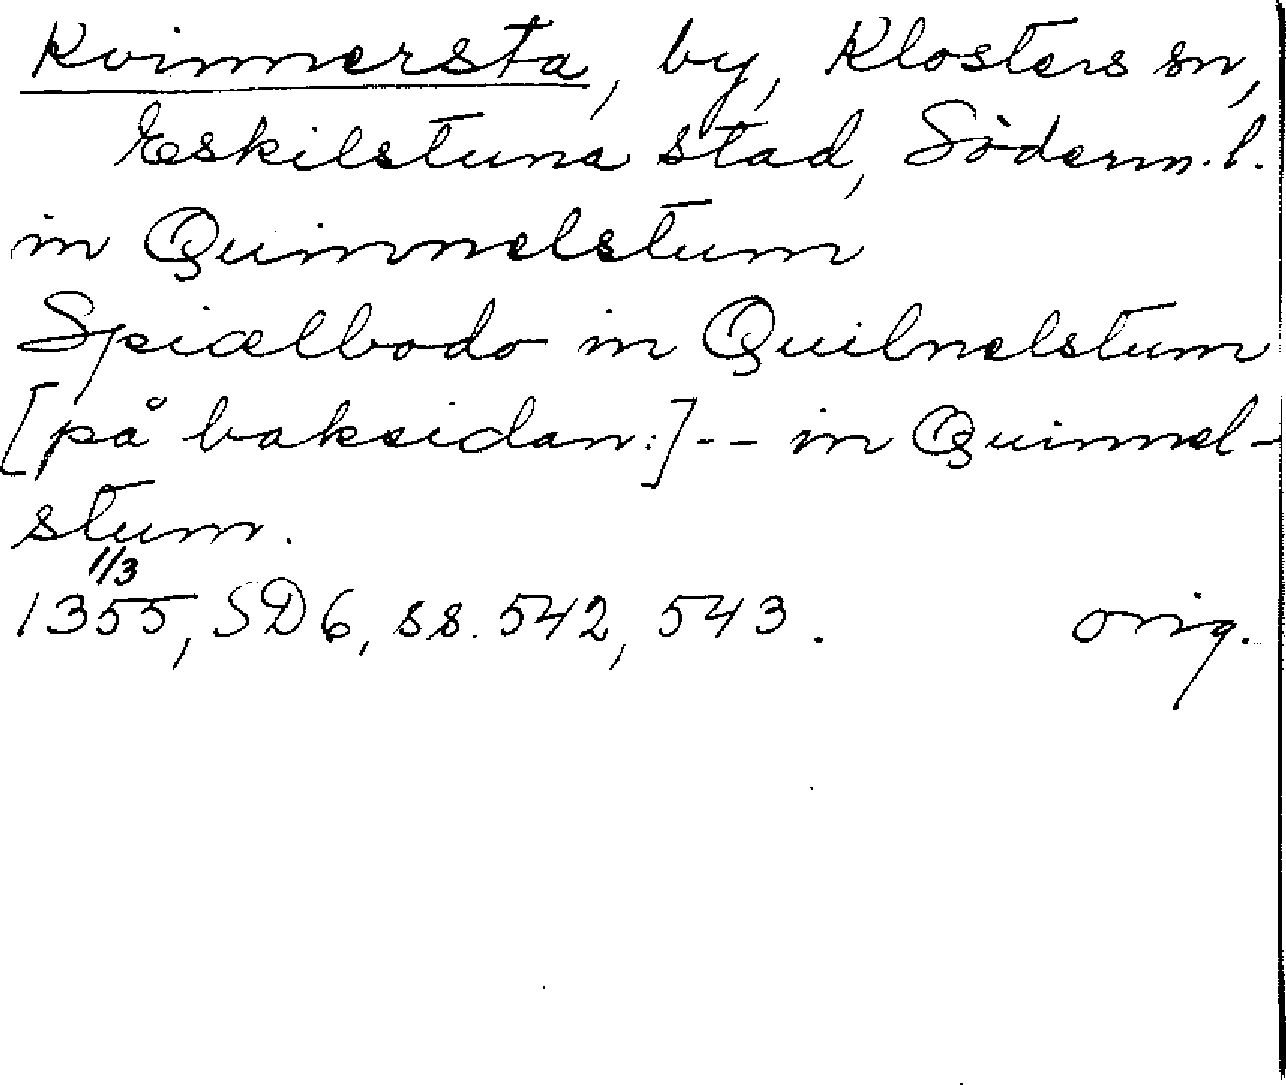 Kvinnersta, by, Klosters sn,
Eskilstuna stad, Söderm.l.
in Quinnelstum
Spiælbodo in Quilnelstum
[på baksidan:]-- in Quinnel-
stum.
1/3
1355, SD6, ss. 542, 543. orig.